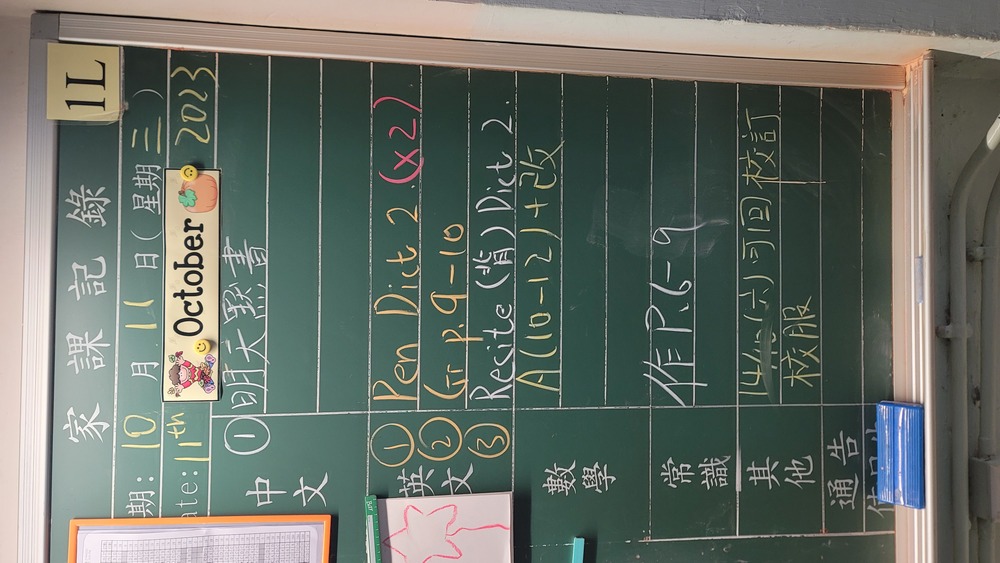 1L
家課記錄
期: 10月11日(星期三)
ate: 11th October 2023
中文 ①明天默書
英文 ① Pen Dict 2 (x2)
② Gr p.9-10
③ Resite (背) Dict 2.
數學 A(10-12)+改
常識 作P.6-9
其他 出(六)可回校訂
校服
通告